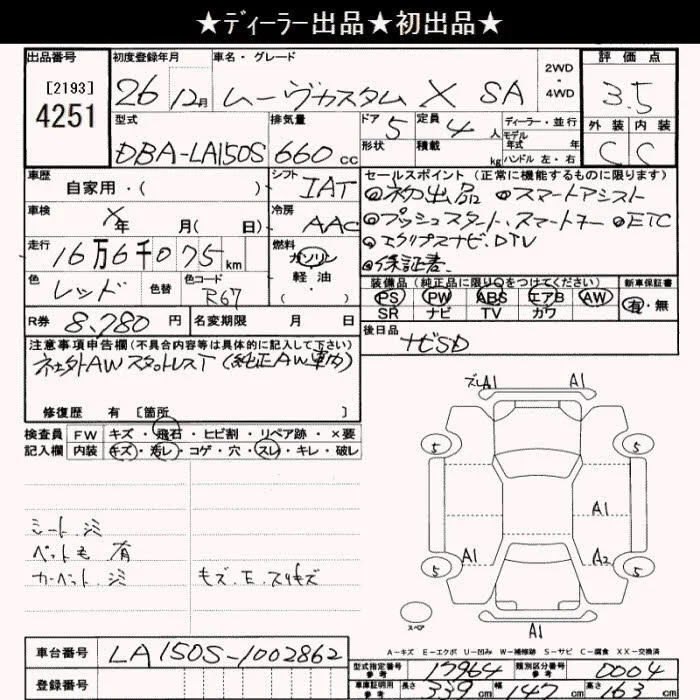 ★ディーラー出品★初出品★
出品番号 初度登録年月 車名・グレード 2WD・4WD 評価点
[2193]
4251 26 年 12月 ムーヴカスタム X SA 3.5
型式 排気量 ドア 5 定員 4 人 ディーラー・並行 外装 内装
DBA-LA150S 660 cc 形状 積載 kg モデル年式 年 ハンドル 左・右 C C
車歴 自家用・( ) シフト IAT セールスポイント (正常に機能するものに限ります)
◎初出品 ◎スマートアシスト
車検 × 年 月( 日) 冷房 AAC ◎プッシュスタート、スマートキー ◎ETC
走行 16万6千075 km 燃料 ガソリン 軽・油 ◎エクリプスナビ、DTV
◎保証書
色 レッド 色替 色コード R67 装備品 (純正品に限り○をつけてください) 新車保証書
PS PW ABS エアB AW 有・無
SR ナビ TV カワ
R券 8,780 円 名変期限 月 日 後日品
ナビSD
注意事項申告欄(不具合内容等は具体的に記入して下さい)
社外AWスタットレスT (純正AW車内)
修復歴 有 [箇所 ]
検査員 FW キズ・飛石・ヒビ割・リペア跡・×要
記入欄 内装 キズ・汚レ・コゲ・穴・スレ・キレ・破レ
ズレA1 A1
5 5
A1
A1 A2
5 5
スペア
A1
シート、シミ
ペット毛 有
カーペット、シミ
A-キズ E-エクボ U-凹み W-補修跡 S-サビ C-腐食 XX-交換済
車台番号 LA150S-1002862
登録番号
型式指定番号 参考 17964 類別区分番号 参考 0004
車庫証明用 参考 長さ 339 cm 幅 147 cm 高さ 163 cm